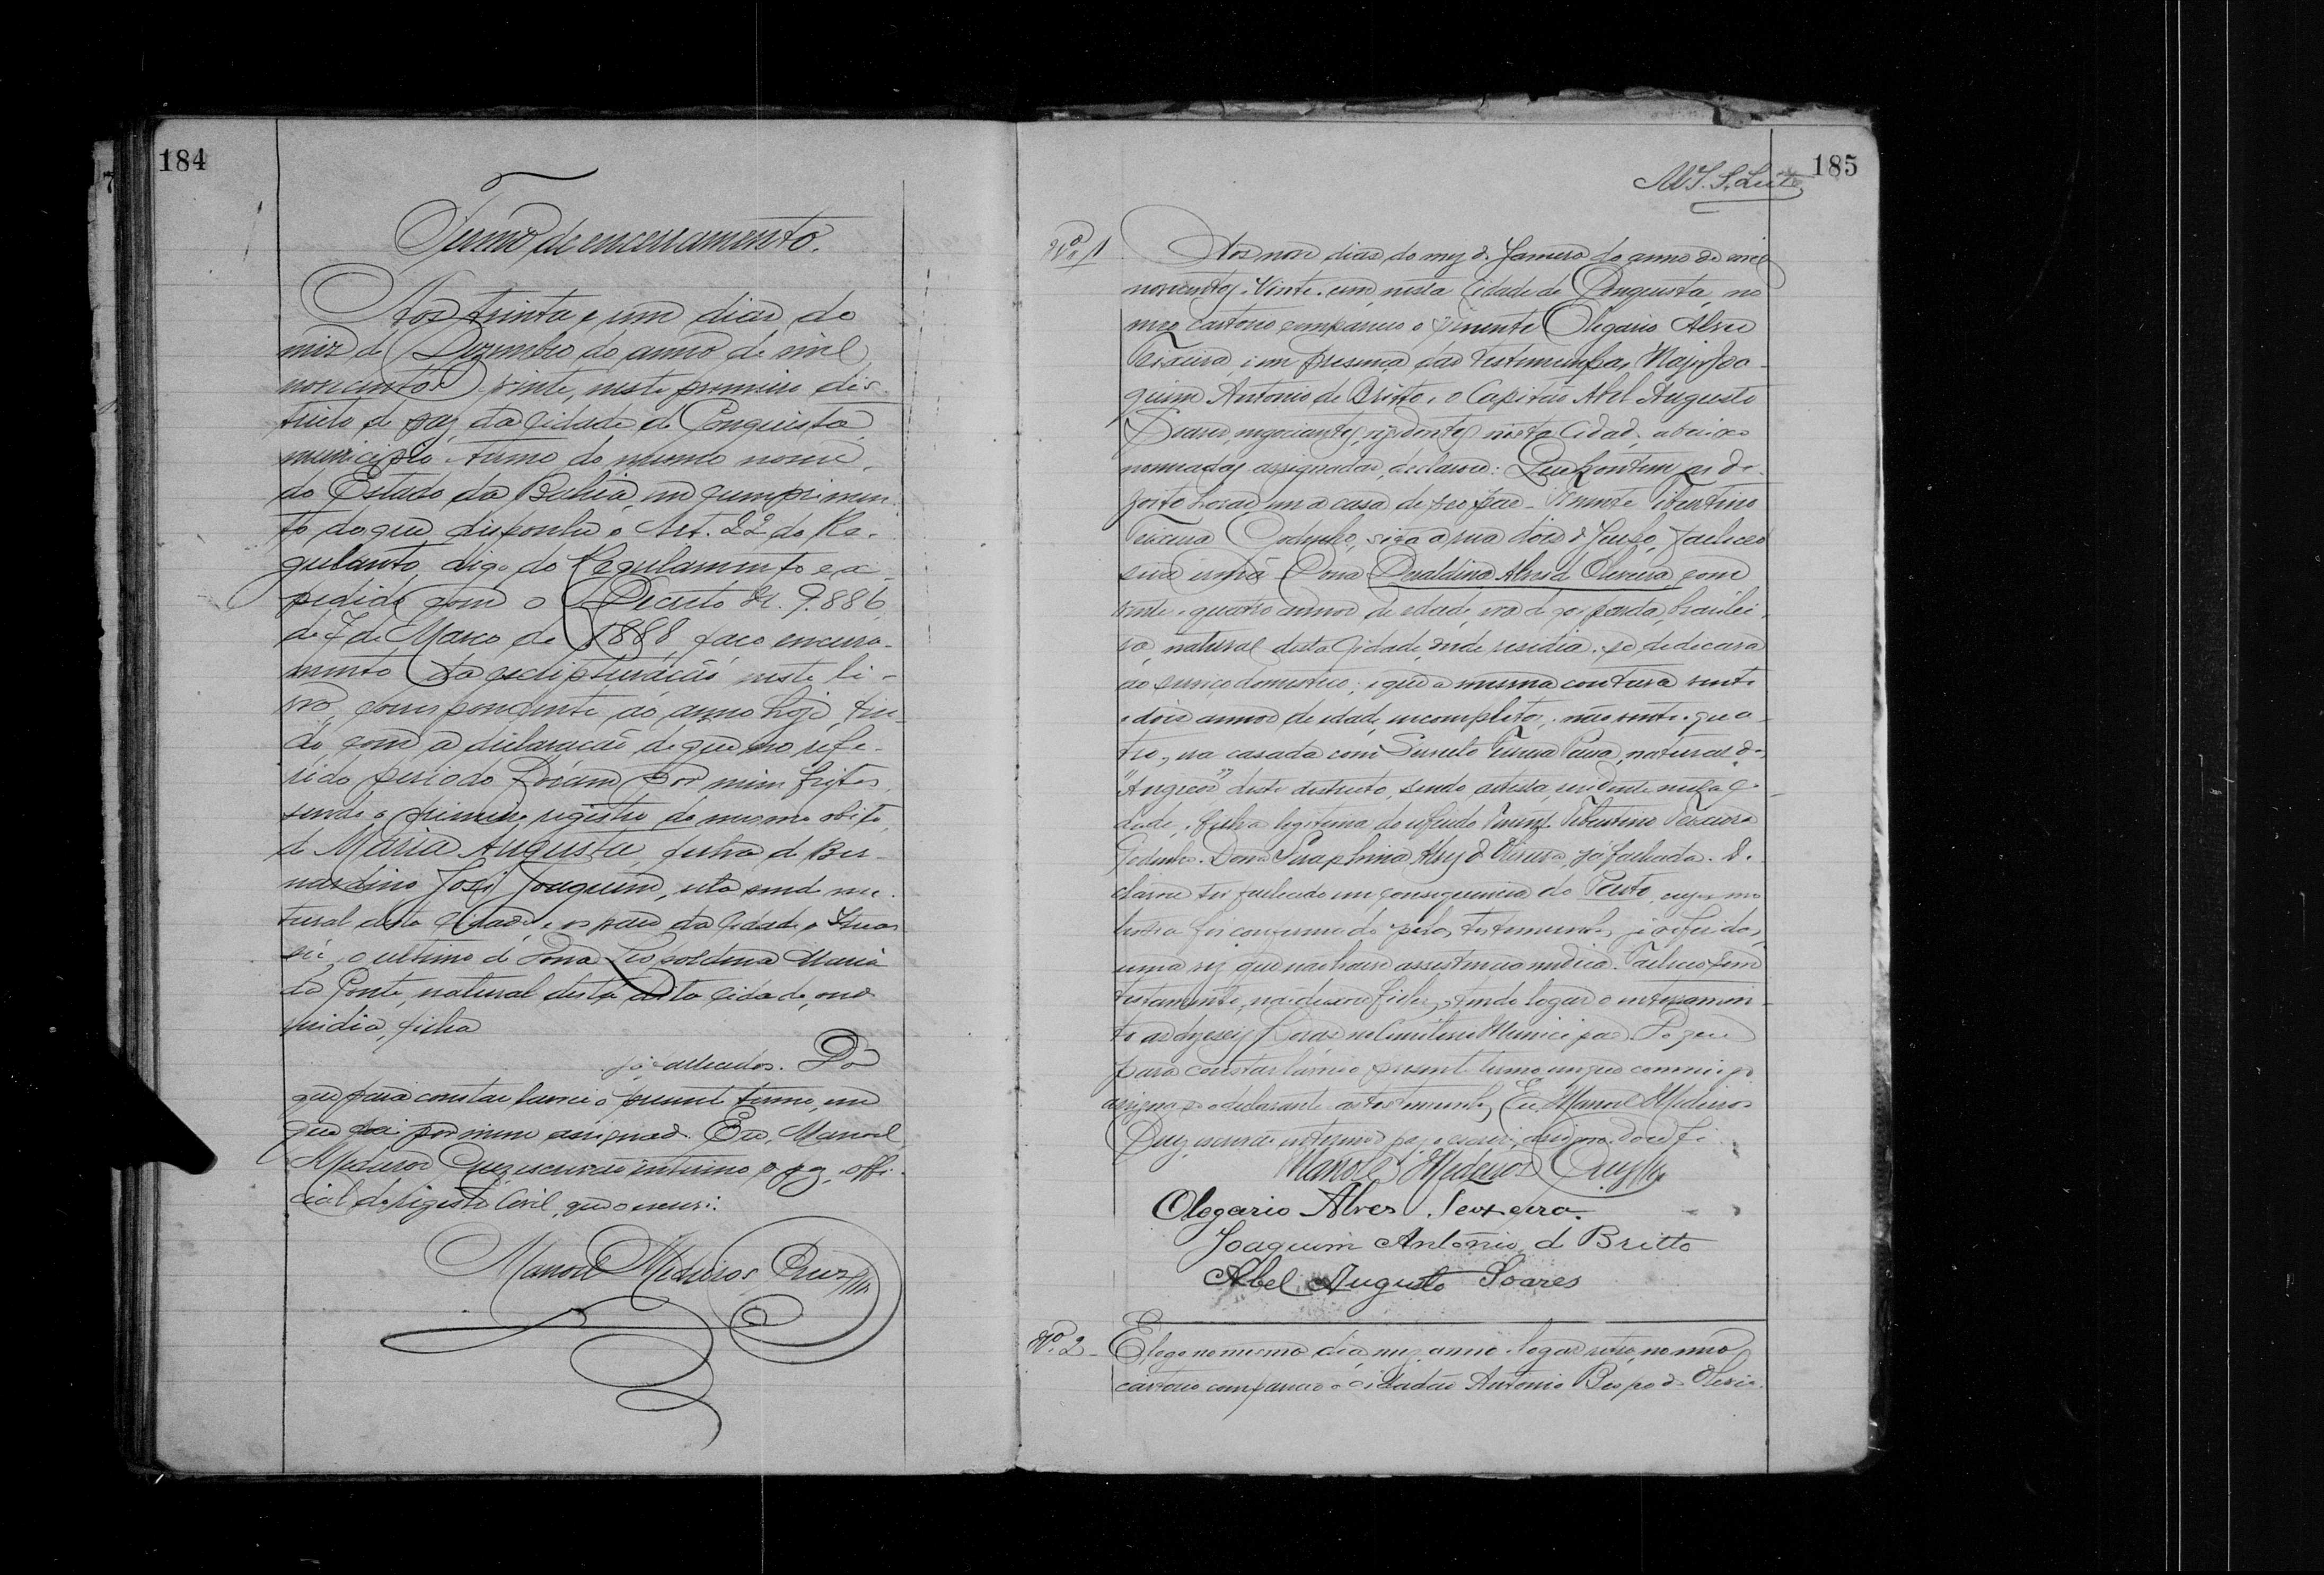 184
Termo de encerramento.
Aos trinta e um dias do
mez de Dezembro do anno de mil
novecentos e vinte, neste primeiro dis-
tricto de paz da Cidade de Conquista,
municipio e termo do mesmo nome,
do Estado da Bahia, em cumprimen-
to do que dispõe o Art. 22 do Re-
gulanto, digo do Regulamento ex-
pedido com o Decreto N. 9.886,
de 7 de Março de 1888, faço encerra-
mento da escripturação neste li-
vro, correspondente ao anno hoje fin-
do, com a declaração de que no refe-
rido periodo foram por mim feitos
sendo o primeiro registro do mesmo obito
de Maria Augusta, filha de Ber-
nardino José Joaquim, esta sendo na-
tural desta Cidade, e os paes da Cidade de
o ultimo de Dona Leopoldina Maria
da Ponte, natural desta desta Cidade, onde
residia, filha
já fallecidos. Do
que para constar lavrei o presente termo, em
que vai por mim assignado. Eu, Manoel
Medeiros Cruz, escrivão interino de paz, offi-
cial do registro Civil, que o escrevi.
Manoel Medeiros Cruz
185
M. J. S. Leite
Nº 1
Aos nove dias do mez de Janeiro do anno de mil
novecentos e vinte e um, nesta Cidade de Conquista, no
meu cartorio compareceu o Tenente Olegario Alves
Teixeira, e em presença das testemunhas, Major Joa-
quim Antonio de Britto, e o Capitão Abel Augusto
Soares, negociantes, residentes nesta Cidade, abaixo
nomeadas assignadas, declarou: Que hontem as de-
zoito horas, em a casa de seo pae - Tenente Tiburtino
Teixeira Godinho, sita a rua dois de Julho, falleceo
sua irmã Dona Deraldina Alves de Oliveira, com
vinte e quatro annos de edade, era de cor parda, brazilei-
ra, natural desta Cidade, onde residia e se dedicava
ao serviço domestico; e que a mesma contava vinte
e dois annos de edade, incompletos, e não vinte e qua-
tro, era casada com Teixeira natural de
"Angicos" deste districto, sendo residente nesta Ci-
dade, e filha legitima do referido Tenente Tiburtino Teixeira
Godinho e Dona Seraphina Alves de Oliveira, já fallecida. De-
clarou ter fallecido em consequencia de Parto, cuja mo-
lestia foi confirmada pelas testemunhas já referidas,
uma vez que não houve assistencia medica. Falleceo sem
testamento, não deixou filhos, e tendo logar o enterramen-
to as dezeseis horas no Cemiterio Municipal. Do que
para constar lavrei o presente termo em que commigo
assignam o declarante e as testemunhas. Eu, Manoel Medeiros
Cruz, escrivão interino de paz, o escrevi, assigno e dou fé.
Manoel Medeiros Cruz
Olegario Alves Teixeira.
Joaquim Antonio de Britto
Abel Augusto Soares
Nº 2
E logo no mesmo dia, mez, anno e logar retro, no meu
cartorio compareceo o cidadão Antonio Bispo de Olivei-